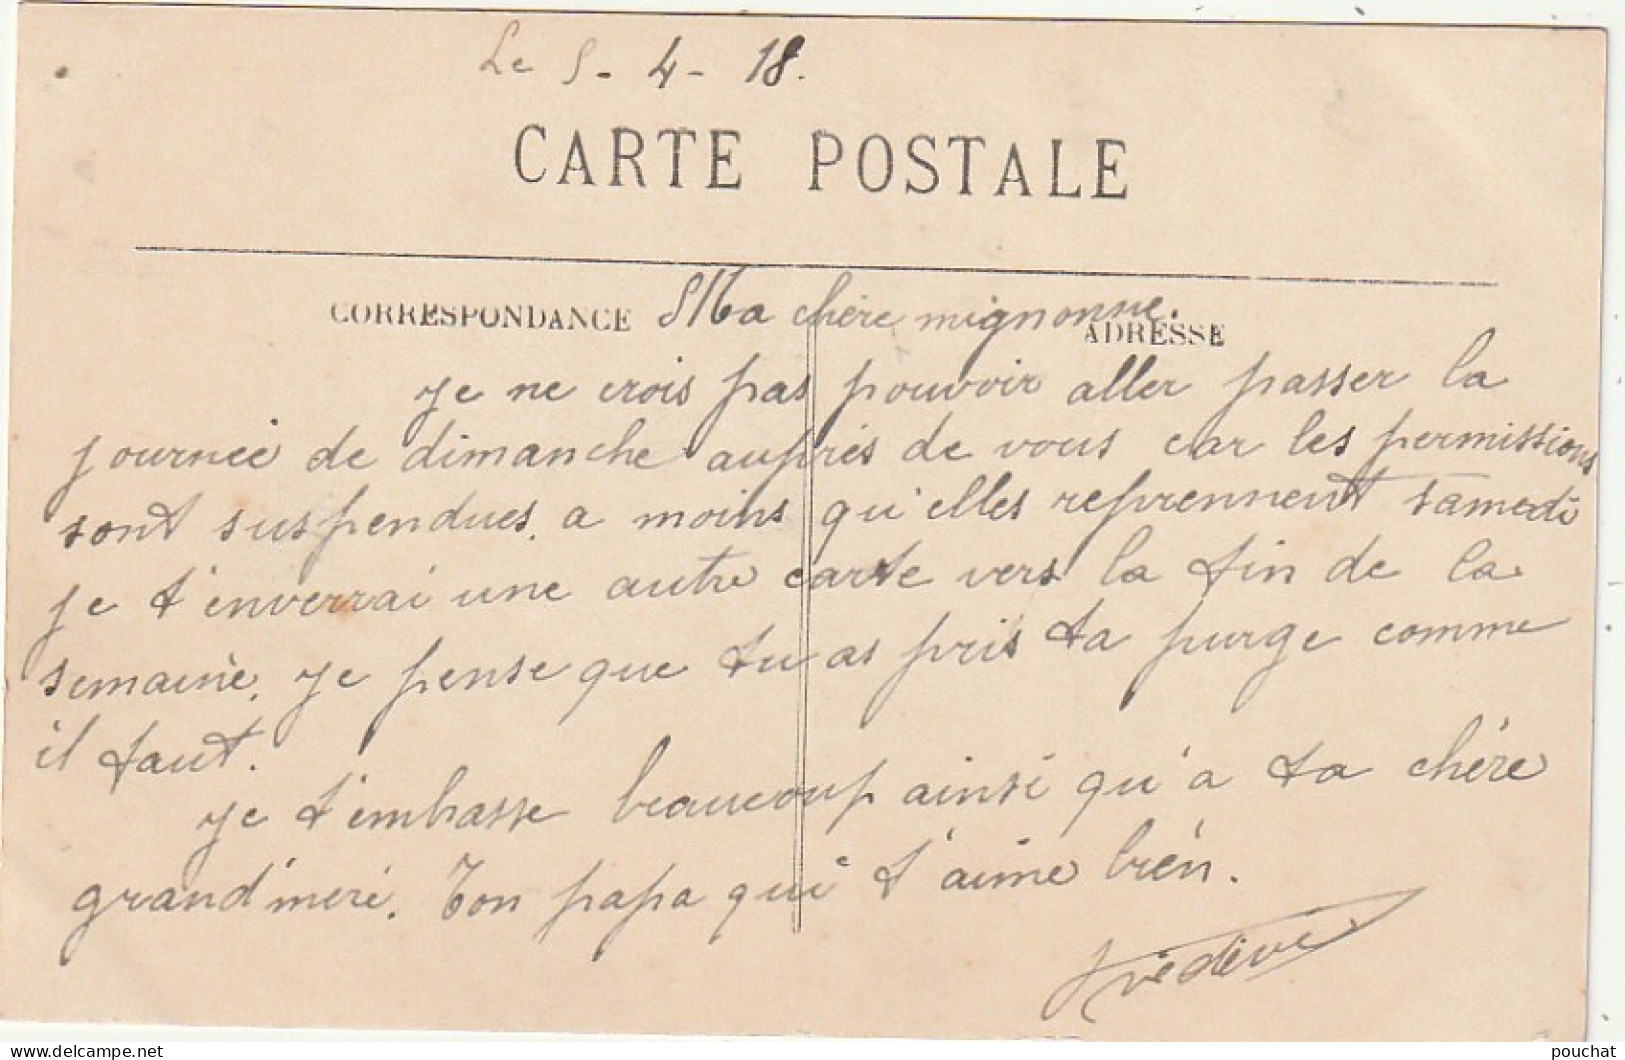 Le 5-4-18.
CARTE POSTALE
CORRESPONDANCE Ma chère mignonne. ADRESSE
Je ne crois pas pouvoir aller passer la
journée de dimanche auprès de vous car les permissions
sont suspendues. a moins qu'elles reprennent samedi
je t'enverrai une autre carte vers la fin de la
semaine. Je pense que tu as pris ta purge comme
il faut.
Je t'embasse beaucoup ainsi qu'a ta chère
grand'mère. Ton papa qui t'aime bien.
pouchat